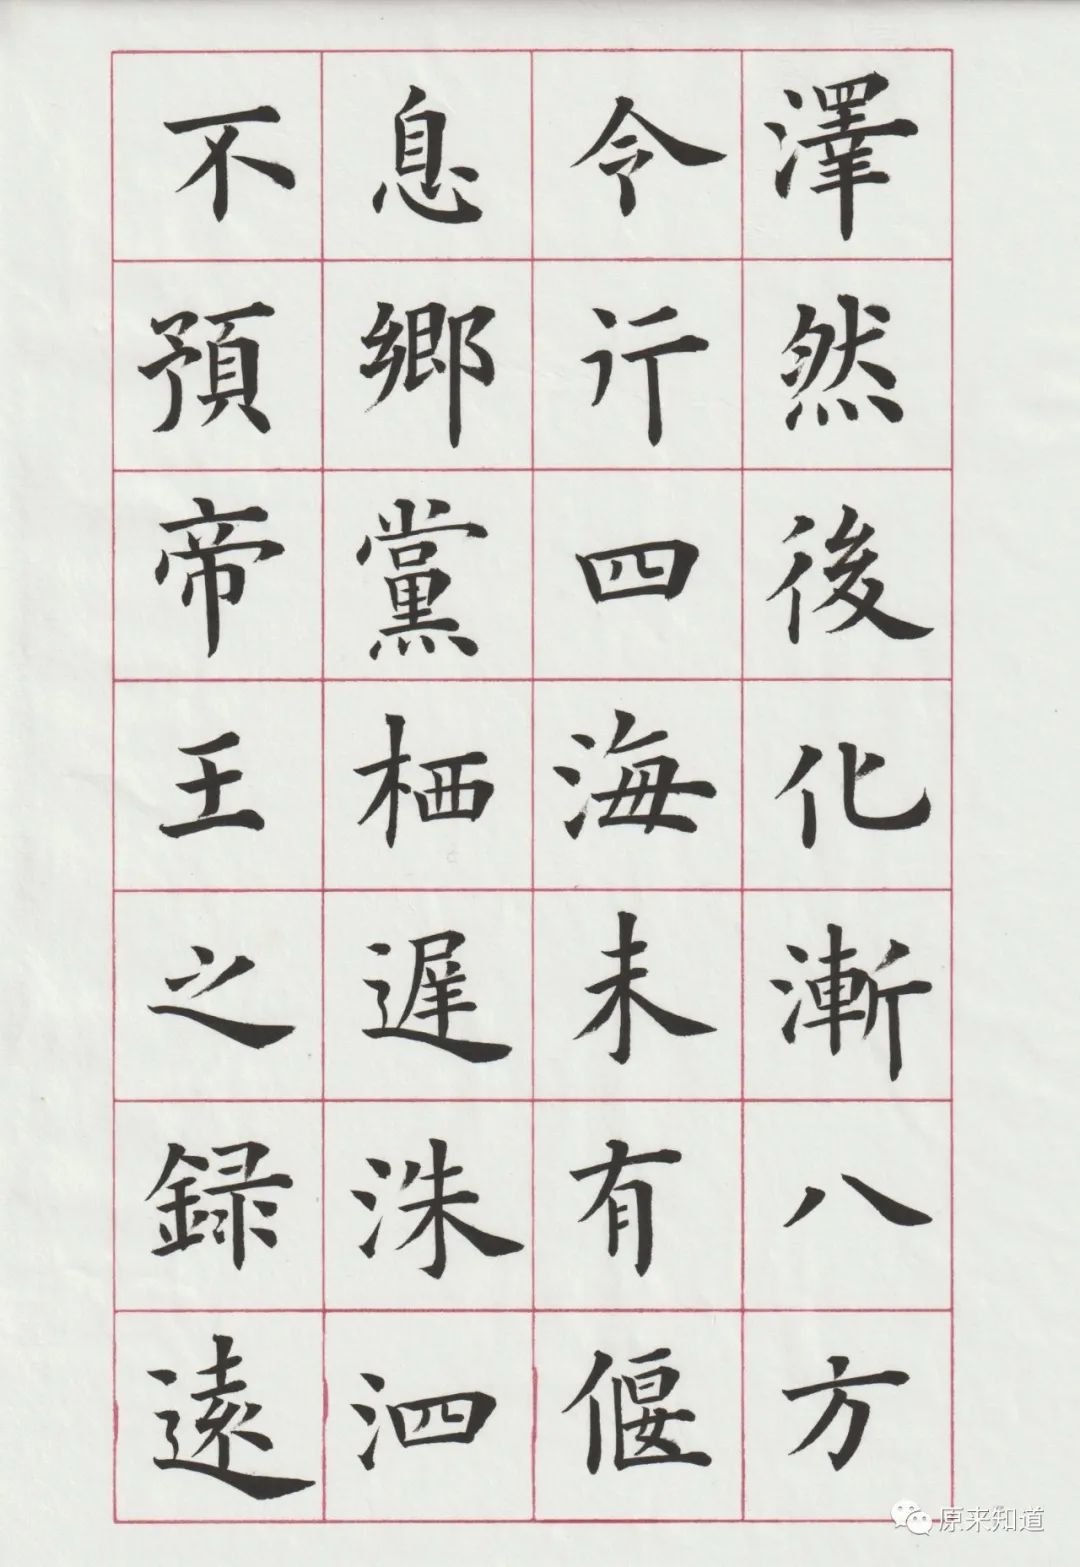 澤然後化漸八方
令行四海未有偃
息鄉黨栖遲洙泗
不預帝王之録遠
原来知道